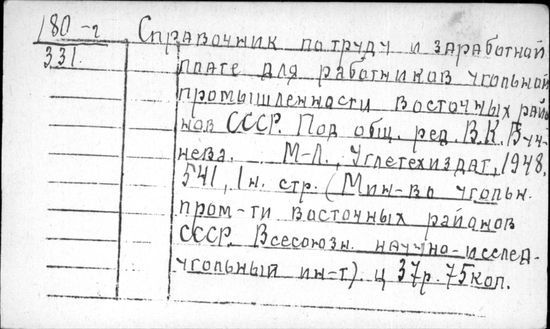 180-г Справочник по труду и заработной
331. плате для работников угольной
промышленности восточных райо
нов СССР. Под общ. ред. В.К. Буч-
нева. М-Л., Углетехиздат, 1948.
541, 1 н. стр. (Мин-во угольн.
пром-ти восточных районов
СССР. Всесоюзн. научно-исслед.
угольный ин-т). ц 37р. 75коп.